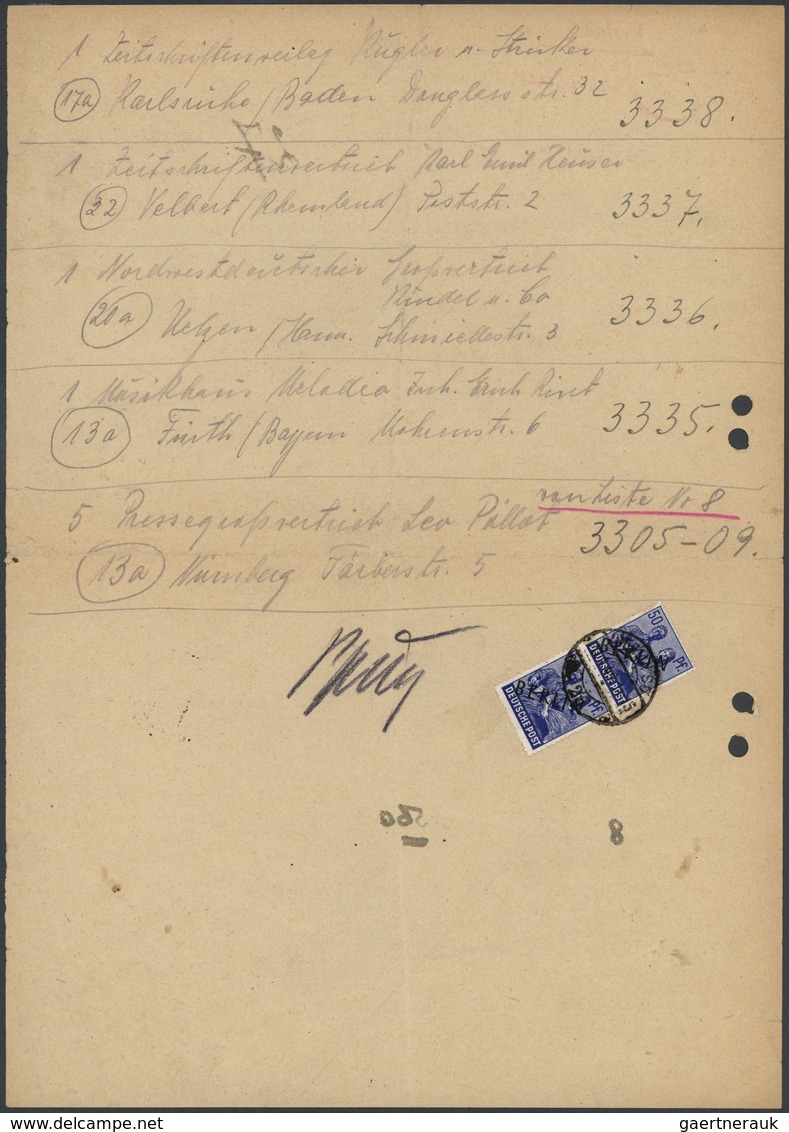 1 Zeitschriftenverlag Kugler u. Stricker
17a Karlsruhe / Baden Douglasstr. 32 3338.
1 Zeitschriftenvertrieb Karl Emil Heuser
22 Velbert (Rheinland) Poststr. 2 3337.
1 Nordwestdeutscher Großvertrieb
Kindel u. Co
20a Uelzen / Hann. Schmiedestr. 3 3336.
1 Musikhaus Melodia Inh. 
13a Fürth / Bayern Mohrenstr. 6 3335.
von Liste Nr 8
5 Pressegroßvertrieb Leo
13a Nürnberg Färberstr. 5 3305-09.
50 Pf.
DEUTSCHE POST
BERLIN
DEUTSCHE POST
560
8
gaertnerauk